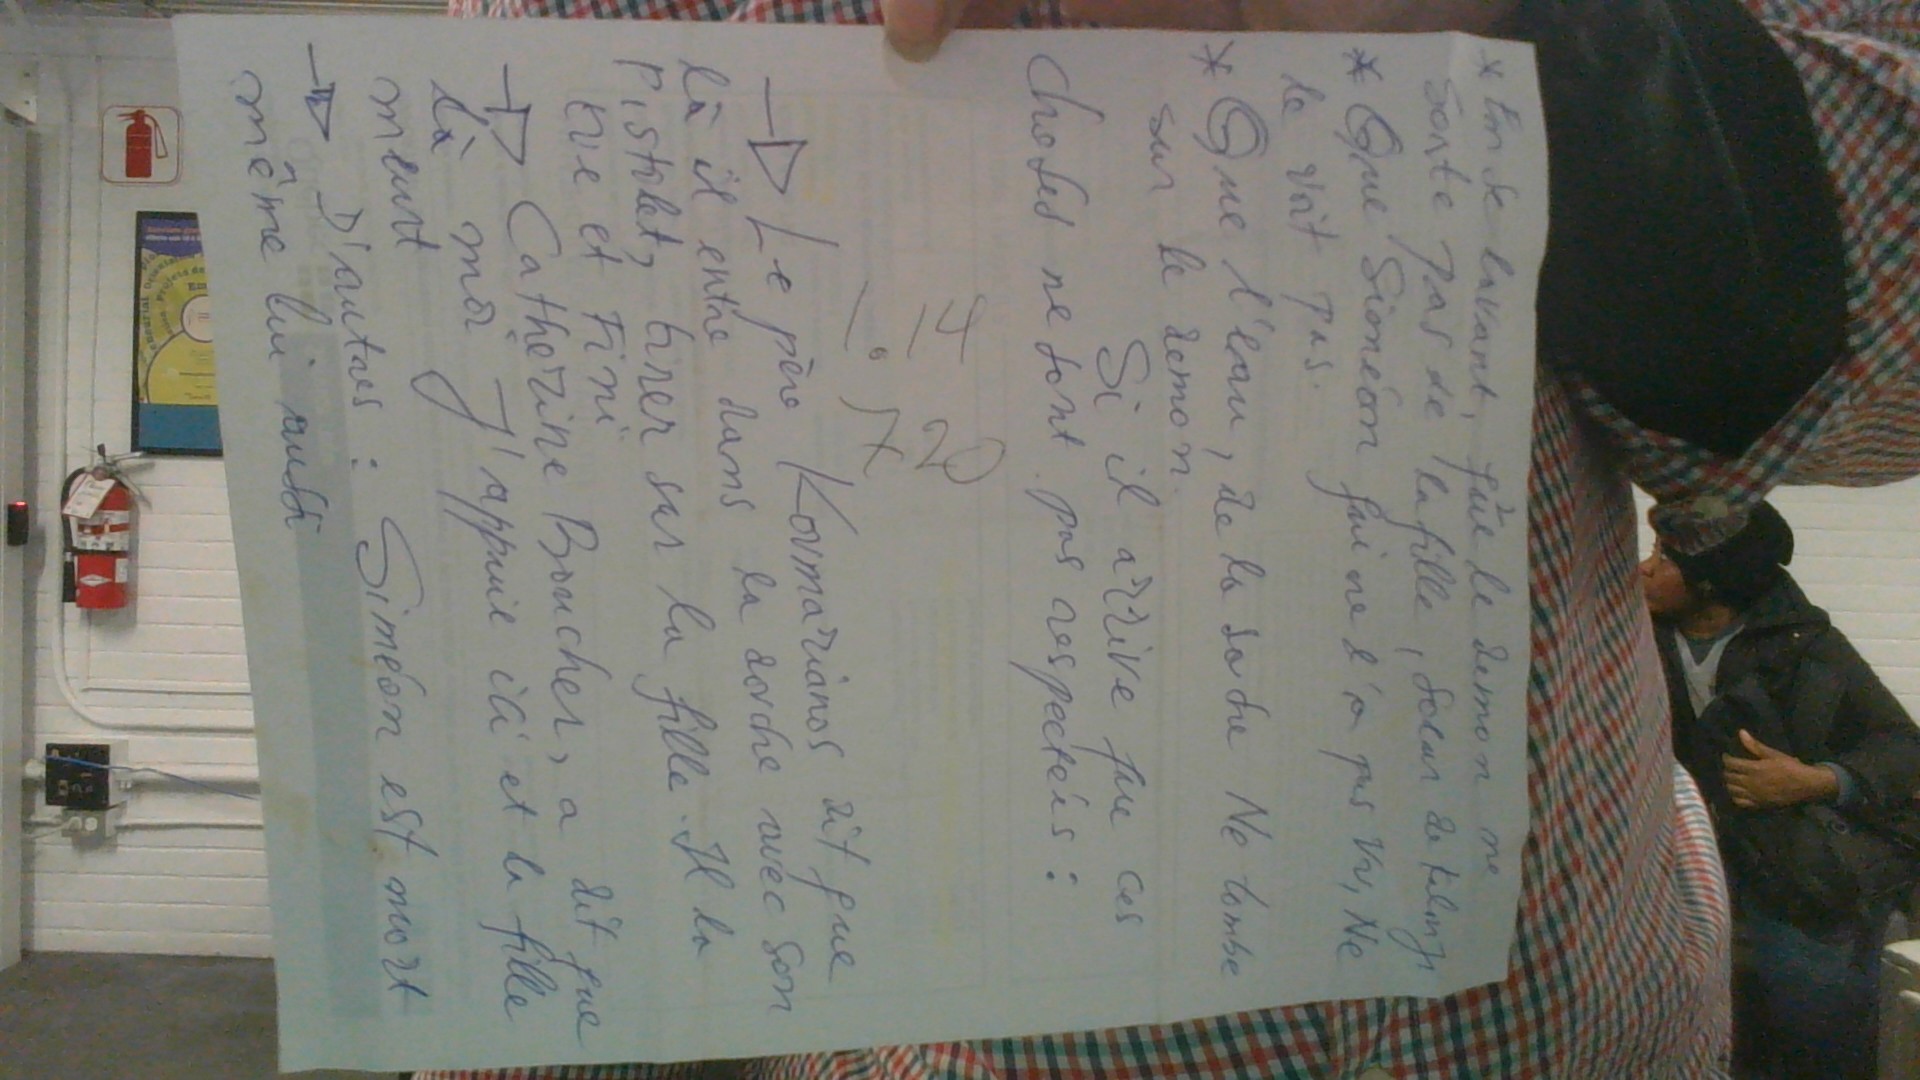 * En se lavant, que le demon ne
sorte pas de la fille, soeur de
* Que Siméon qui ne l'a pas vu, Ne
le voit pas.
* Que l'eau, de la soude Ne tombe
sur le demon.
Si il arrive que ces
choses ne sont pas respectés :
14 20
→ Le père Kovmarianos dit que
là il entre dans la douche avec son
pistolet, tirer sur la fille. Il la
tue et Fini
→ Catherine Boucher, a dit que
là moi J'appuie ici et la fille
meurt
→ D'autres : Siméon est mort
même lui aussi